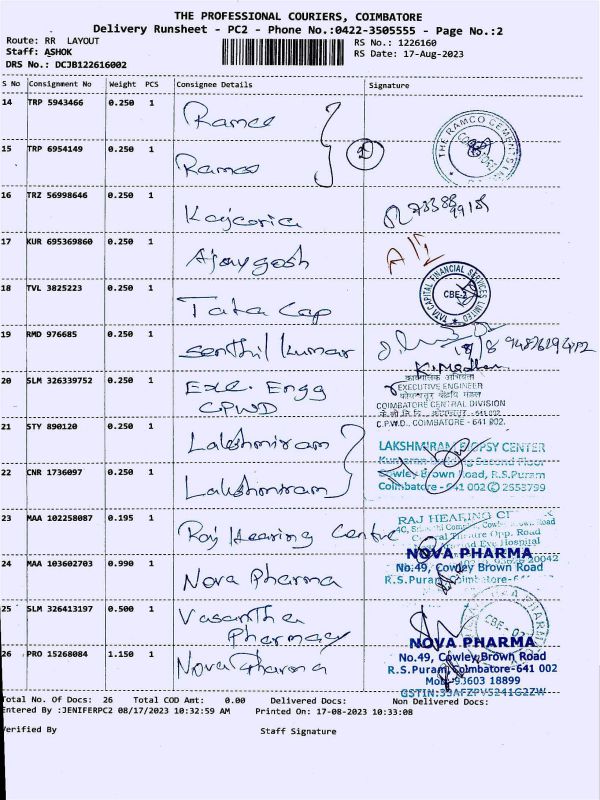 THE PROFESSIONAL COURIERS, COIMBATORE
Delivery Runsheet - PC2 - Phone No.:0422-3505555 - Page No.:2
Route: RR LAYOUT
RS No.: 1226160
Staff: ASHOK
RS Date: 17-Aug-2023
DRS No.: DCJB122616002
S No Consignment No Weight PCS Consignee Details Signature
14 TRP 5943466 0.250 1 Ramco
THE RAMCO CEMENTS
15 TRP 6954149 0.250 1 Ramco
2
16 TRZ 56998646 0.250 1
17 KUR 695369860 0.250 1 Ajaygosh
18 TVL 3825223 0.250 1 Tata Cap
TATA CAPITAL FINANCIAL SERVICES LIMITED
CBE-2
19 RMD 976685 0.250 1 Senthil Kumar
20 SLM 326339752 0.250 1 Exe. Engg
CPWD
EXECUTIVE ENGINEER
COIMBATORE CENTRAL DIVISION
C.P.W.D., COIMBATORE - 641 002.
21 STY 890120 0.250 1 Lakshmiram
LAKSHMIRAM BIOPSY CENTER
Second Floor
Cowley Brown Road, R.S.Puram
Coimbatore - 641 002 2553799
22 CNR 1736097 0.250 1 Lakshmiram
23 MAA 102258087 0.195 1 Raj Hearing Centre
RAJ HEARING
Opp. Road
Eye Hospital
24 MAA 103602703 0.990 1 Nova Pharma
NOVA PHARMA
No.49, Cowley Brown Road
R.S.Puram, Coimbatore-
25 SLM 326413197 0.500 1 Vasantha
Pharmacy
26 PRO 15268084 1.150 1 Nova Pharma
NOVA PHARMA
No.49, Cowley Brown Road
R.S.Puram, Coimbatore-641 002
Mob: 93603 18899
Total No. Of Docs: 26 Total COD Amt: 0.00 Delivered Docs: Non Delivered Docs:
Entered By :JENIFERPC2 08/17/2023 10:32:59 AM Printed On: 17-08-2023 10:33:08
Verified By Staff Signature